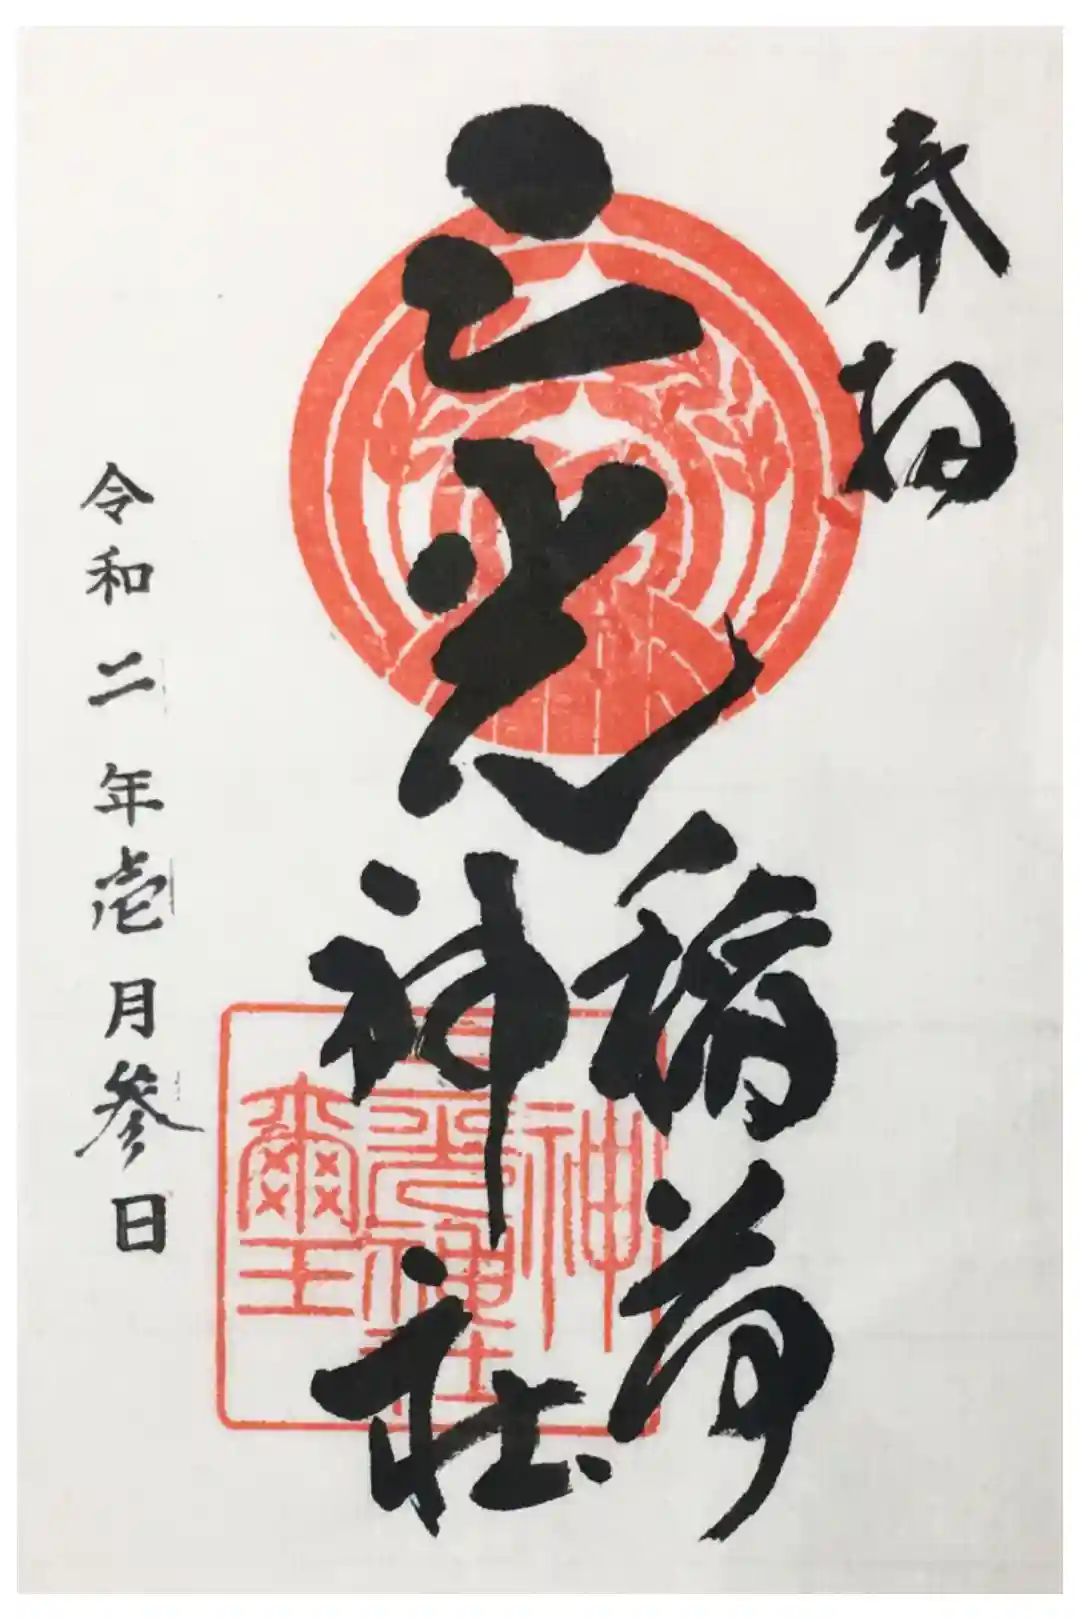 奉拝
三光稲荷神社
令和二年壱月参日
神
三光神社
璽